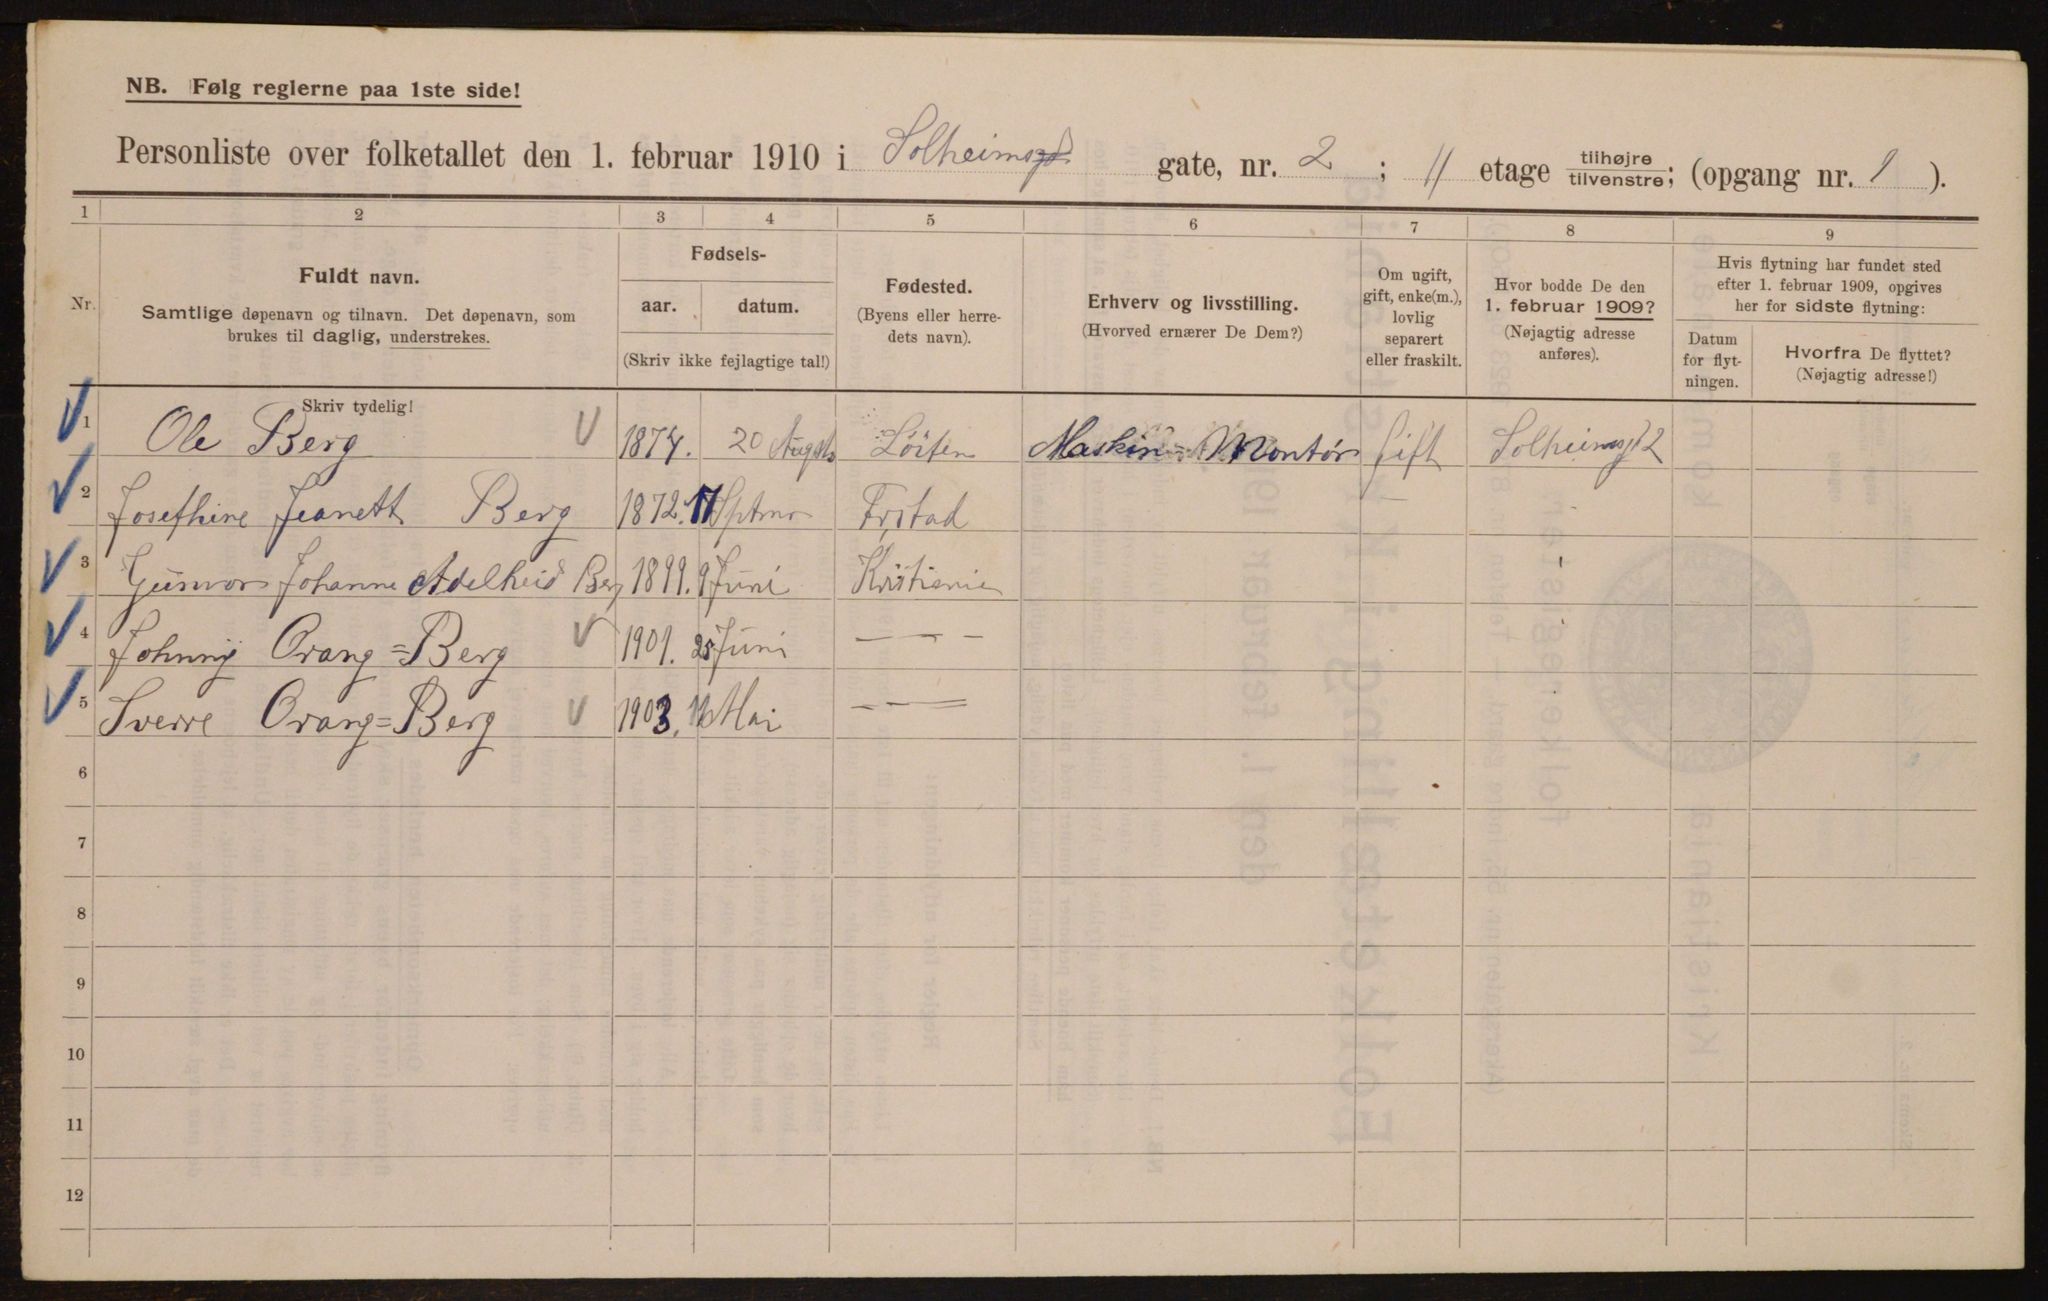 NB. Følg reglerne paa 1ste side!
Personliste over folketallet den 1. februar 1910 i Solheimsgd. gate, nr. 2 ; II etage tilhøjre/tilvenstre; (opgang nr. 1 ).
1 2 3 4 5 6 7 8 9
Nr.
Fuldt navn.
Samtlige døpenavn og tilnavn. Det døpenavn, som
brukes til daglig, understrekes.
Fødsels-
aar. datum.
(Skriv ikke fejlagtige tal!)
Fødested.
(Byens eller herre-
dets navn).
Erhverv og livsstilling.
(Hvorved ernærer De Dem?)
Om ugift,
gift, enke(m.),
lovlig
separert
eller fraskilt.
Hvor bodde De den
1. februar 1909?
(Nøjagtig adresse
anføres).
Hvis flytning har fundet sted
efter 1. februar 1909, opgives
her for sidste flytning:
Datum
for flyt-
ningen.
Hvorfra De flyttet?
(Nøjagtig adresse!)
Skriv tydelig!
1 Ole Berg 1874. 20 Augst Löiten Maskin=Montör Gift Solheimsgt 2
2 Josefhine Jeanett Berg 1872. 17 Sptmr Frstad —
3 Gunvor Johanne Adelheid Berg 1899. 9 Juni Kristiania
4 Johnny Orang=Berg 1901. 28 Juni — — —
5 Sverre Orang=Berg 1903. Mai — — —
6
7
8
9
10
11
12